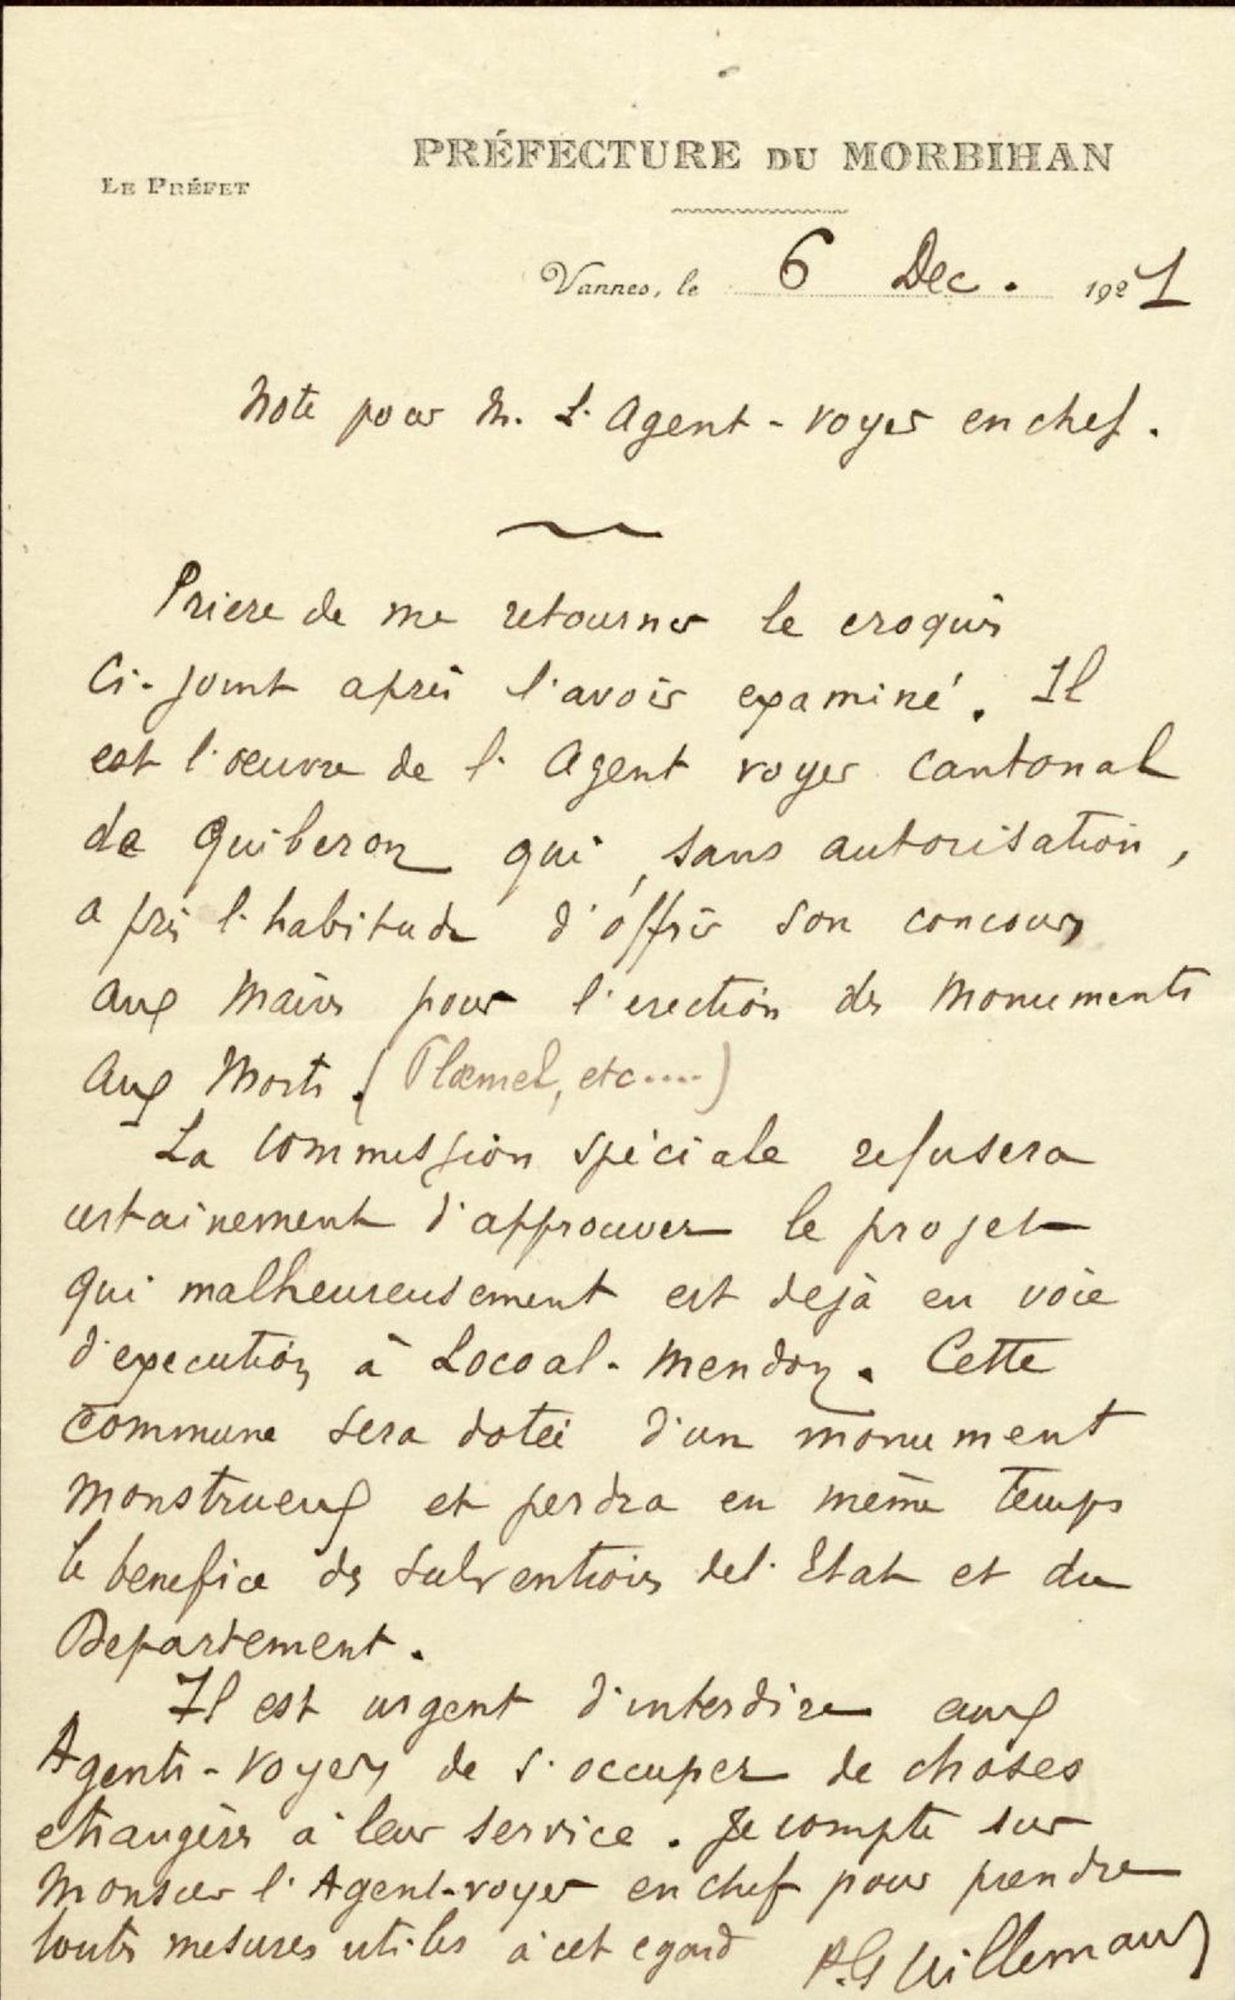 PRÉFECTURE DU MORBIHAN
LE PRÉFET
Vannes, le 6 Dec. 1921
Note pour M. L'Agent-voyer en chef.
Priere de me retourner le croquis
Ci-joint après l'avoir examiné. Il
est l'œuvre de l'Agent voyer cantonal
de Quiberon qui, sans autorisation,
a pris l'habitude d'offrir son concours
aux Maires pour l'erection des Monuments
aux Morts. (Ploemel, etc....)
La Commission spéciale refusera
certainement d'approuver le projet
qui malheureusement est dejà en voie
d'execution à Locoal-Mendon. Cette
Commune sera dotée d'un monument
monstrueux et perdra en même temps
le benefice des subventions de l'Etat et du
Departement.
Il est urgent d'interdire aux
Agents-Voyers de s'occuper de choses
etrangères à leur service. Je compte sur
Monsieur l'Agent-voyer en chef pour prendre
toutes mesures utiles à cet egard
P. Guillemaut